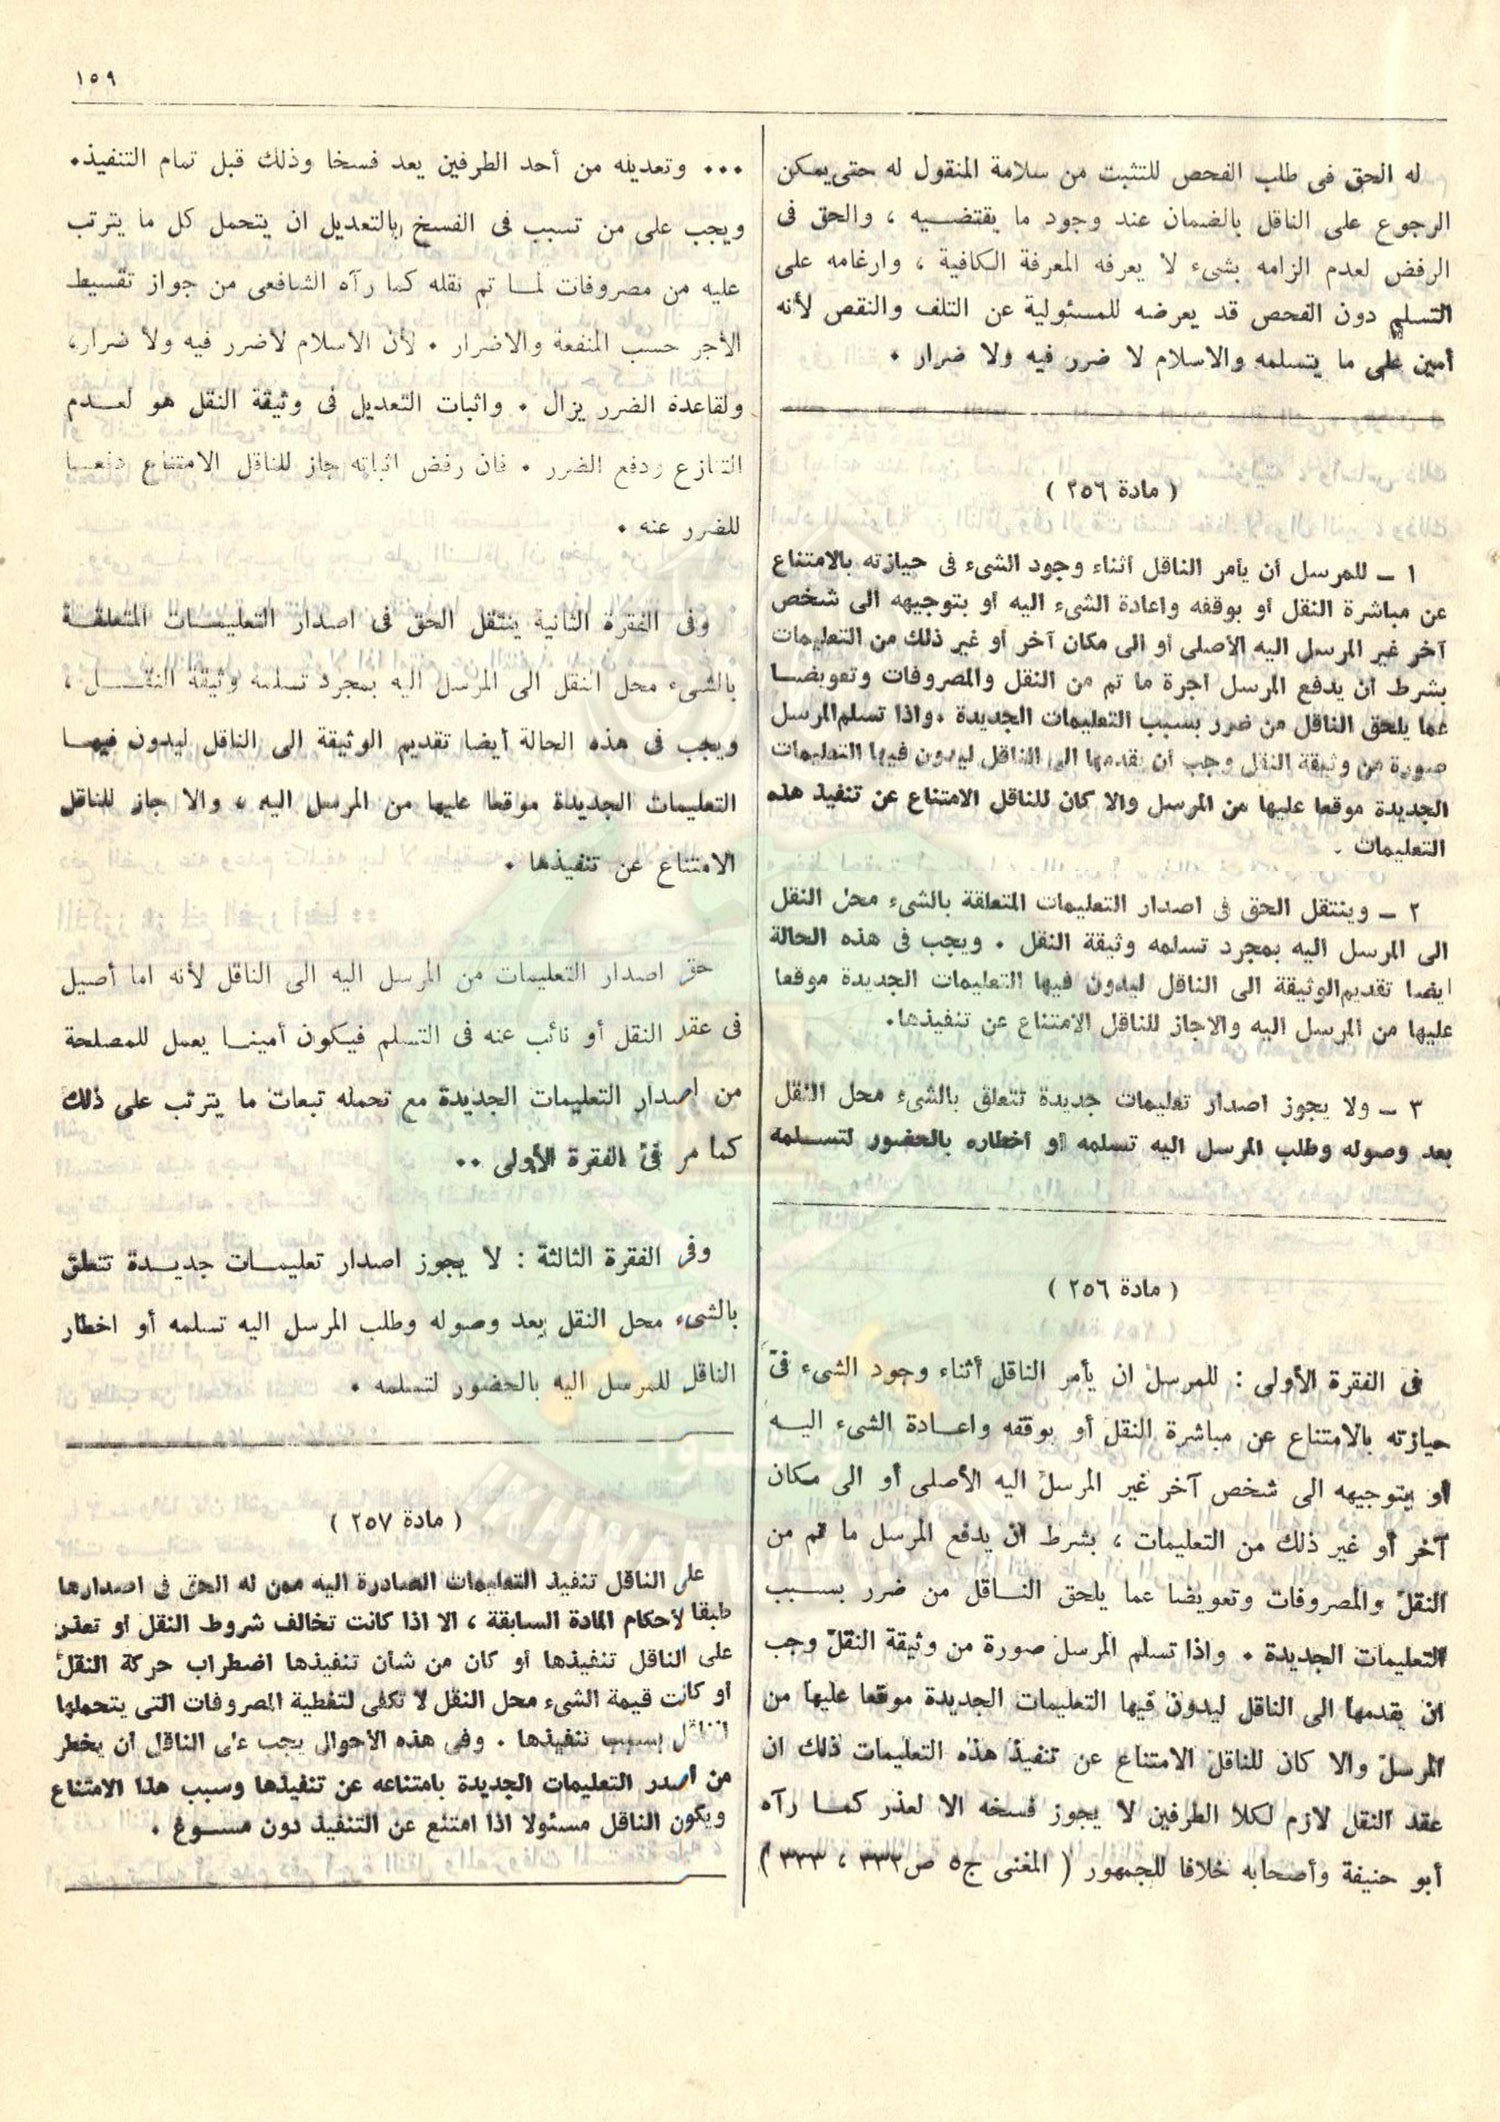 ١٥٩
له الحق فى طلب الفحص للتثبت من سلامة المنقول له حتى يمكن
الرجوع على الناقل بالضمان عند وجود ما يقتضيه ، والحق فى
الرفض لعدم الزامه بشىء لا يعرفه المعرفة الكافية ، وارغامه على
التسلم دون الفحص قد يعرضه للمسئولية عن التلف والنقص لأنه
أمين على ما يتسلمه والاسلام لا ضرر فيه ولا ضرار .
( مادة ٢٥٦ )
١ - للمرسل أن يأمر الناقل أثناء وجود الشىء فى حيازته بالامتناع
عن مباشرة النقل أو بوقفه واعادة الشىء اليه أو بتوجيهه الى شخص
آخر غير المرسل اليه الأصلى أو الى مكان آخر أو غير ذلك من التعليمات
بشرط أن يدفع المرسل اجرة ما تم من النقل والمصروفات وتعويضا
عما يلحق الناقل من ضرر بسبب التعليمات الجديدة . واذا تسلم المرسل
صورة من وثيقة النقل وجب أن يقدمها الى الناقل ليدون فيها التعليمات
الجديدة موقعا عليها من المرسل والا كان للناقل الامتناع عن تنفيذ هذه
التعليمات .
٢ - وينتقل الحق فى اصدار التعليمات المتعلقة بالشىء محل النقل
الى المرسل اليه بمجرد تسلمه وثيقة النقل . ويجب فى هذه الحالة
ايضا تقديم الوثيقة الى الناقل ليدون فيها التعليمات الجديدة موقعا
عليها من المرسل اليه والا جاز للناقل الامتناع عن تنفيذها .
٣ - ولا يجوز اصدار تعليمات جديدة تتعلق بالشىء محل النقل
بعد وصوله وطلب المرسل اليه تسلمه أو اخطاره بالحضور لتسلمه
( مادة ٢٥٦ )
فى الفقرة الأولى : للمرسل ان يأمر الناقل أثناء وجود الشىء فى
حيازته بالامتناع عن مباشرة النقل أو بوقفه واعادة الشىء اليه
او بتوجيهه الى شخص آخر غير المرسل اليه الأصلى أو الى مكان
آخر أو غير ذلك من التعليمات ، بشرط ان يدفع المرسل ما تم من
النقل والمصروفات وتعويضا عما يلحق الناقل من ضرر بسبب
التعليمات الجديدة . واذا تسلم المرسل صورة من وثيقة النقل وجب
ان يقدمها الى الناقل ليدون فيها التعليمات الجديدة موقعا عليها من
المرسل والا كان للناقل الامتناع عن تنفيذ هذه التعليمات ذلك ان
عقد النقل لازم لكلا الطرفين لا يجوز فسخه الا لعذر كما رآه
أبو حنيفة وأصحابه خلافا للجمهور ( المغنى ج٥ ص٣٣٢ ، ٣٣٣ )
... وتعديله من أحد الطرفين يعد فسخا وذلك قبل تمام التنفيذ .
ويجب على من تسبب فى الفسخ بالتعديل ان يتحمل كل ما يترتب
عليه من مصروفات لما تم نقله كما رآه الشافعى من جواز تقسيط
الأجر حسب المنفعة والاضرار . لأن الاسلام لاضرر فيه ولا ضرار،
ولقاعدة الضرر يزال . واثبات التعديل فى وثيقة النقل هو لعدم
التنازع ودفع الضرر . فان رفض اثباته جاز للناقل الامتناع دفعا
للضرر عنه .
وفى الفقرة الثانية ينتقل الحق فى اصدار التعليمات المتعلقة
بالشىء محل النقل الى المرسل اليه بمجرد تسلمه وثيقة النقل ،
ويجب فى هذه الحالة أيضا تقديم الوثيقة الى الناقل ليدون فيها
التعليمات الجديدة موقعا عليها من المرسل اليه ، والا جاز للناقل
الامتناع عن تنفيذها .
حق اصدار التعليمات من المرسل اليه الى الناقل لأنه اما أصيل
فى عقد النقل أو نائب عنه فى التسلم فيكون أمينا يعمل للمصلحة
من اصدار التعليمات الجديدة مع تحمله تبعات ما يترتب على ذلك
كما مر فى الفقرة الأولى ..
وفى الفقرة الثالثة : لا يجوز اصدار تعليمات جديدة تتعلق
بالشىء محل النقل بعد وصوله وطلب المرسل اليه تسلمه أو اخطار
الناقل للمرسل اليه بالحضور لتسلمه .
( مادة ٢٥٧ )
على الناقل تنفيذ التعليمات الصادرة اليه ممن له الحق فى اصدارها
طبقا لأحكام المادة السابقة ، الا اذا كانت تخالف شروط النقل او تعذر
على الناقل تنفيذها أو كان من شأن تنفيذها اضطراب حركة النقل
او كانت قيمة الشىء محل النقل لا تكفى لتغطية المصروفات التى يتحملها
الناقل بسبب تنفيذها . وفى هذه الأحوال يجب على الناقل ان يخطر
من أصدر التعليمات الجديدة بامتناعه عن تنفيذها وسبب هذا الامتناع
ويكون الناقل مسئولا اذا امتنع عن التنفيذ دون مسوغ .